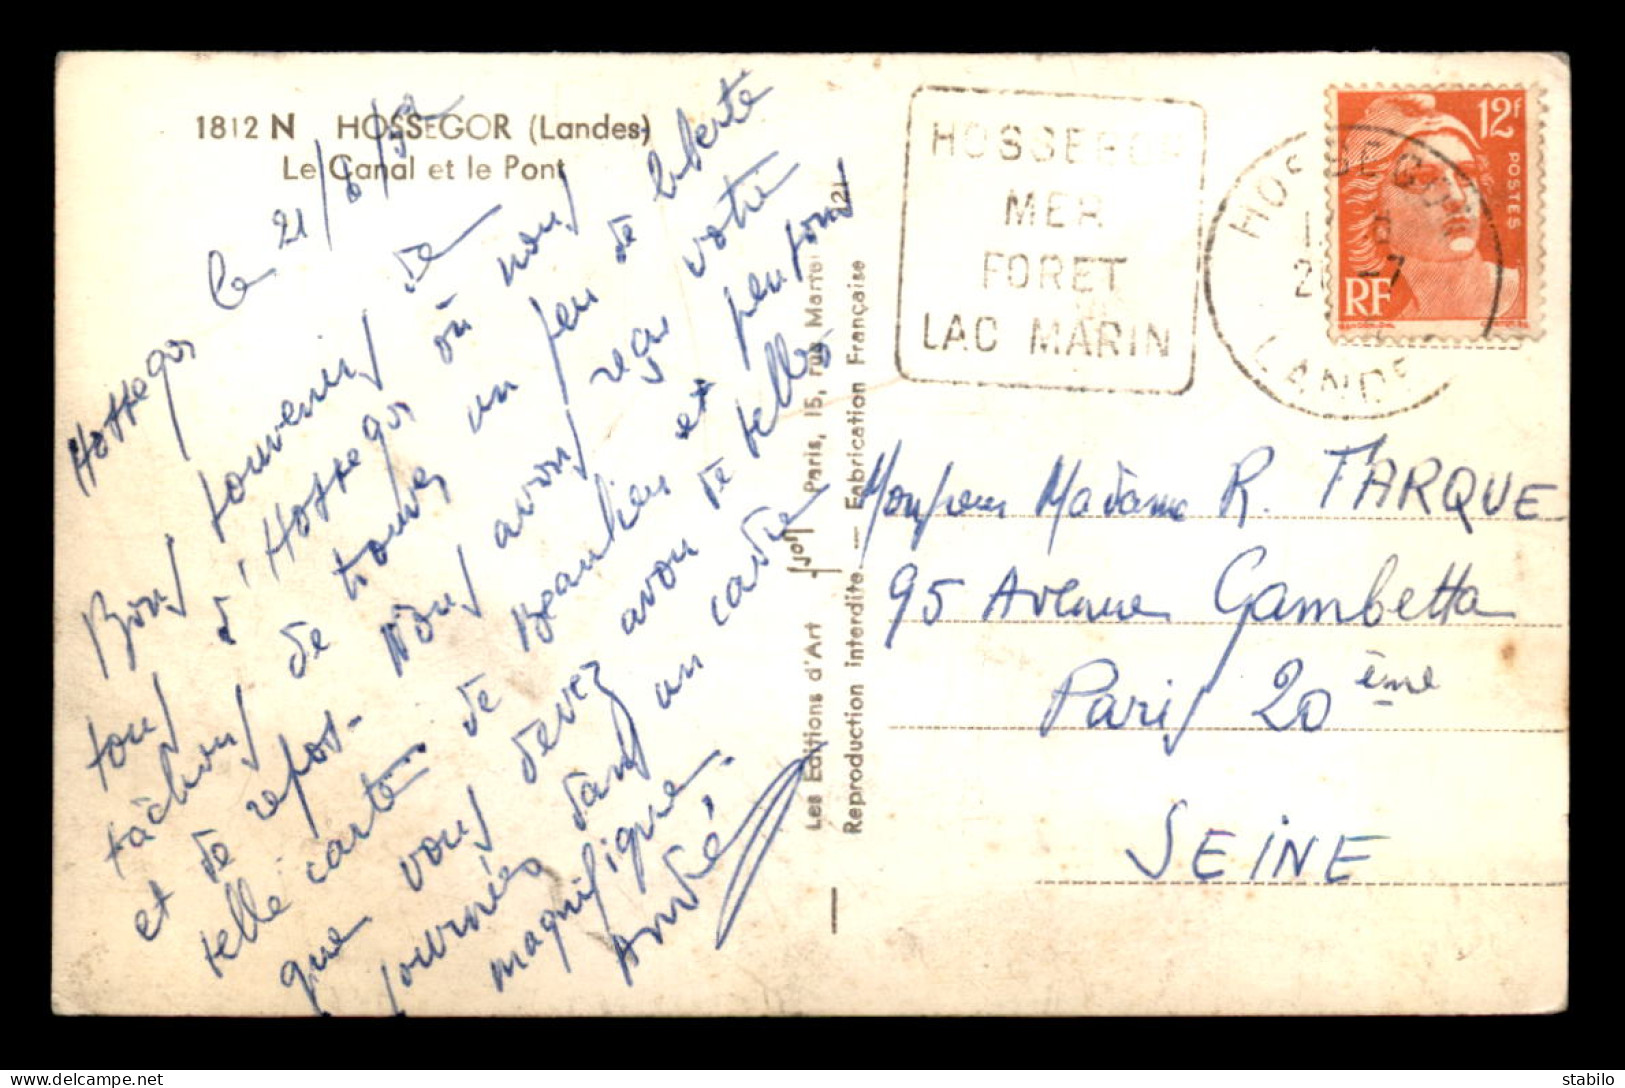 1812 N HOSSEGOR (Landes)
Le Canal et le Pont
Hossegor le 21/8/52
Bons souvenirs de
tous d'Hossegor où nous
tâchons de trouver un peu de liberté
et de repos. Nous avons reçu votre
belle carte de Beaulieu et pensons
que vous devez avoir de belles
journées dans un cadre
magnifique.
André
Les Editions d'Art Yvon Paris, 15, rue Martel 121
Reproduction interdite — Fabrication Française
HOSSEGOR
MER
FORET
LAC MARIN
HOSSEGOR
LANDES
12f
POSTES
RF
Monsieur Madame R. FARQUE
95 Avenue Gambetta
Paris 20 ème
SEINE
stabilo